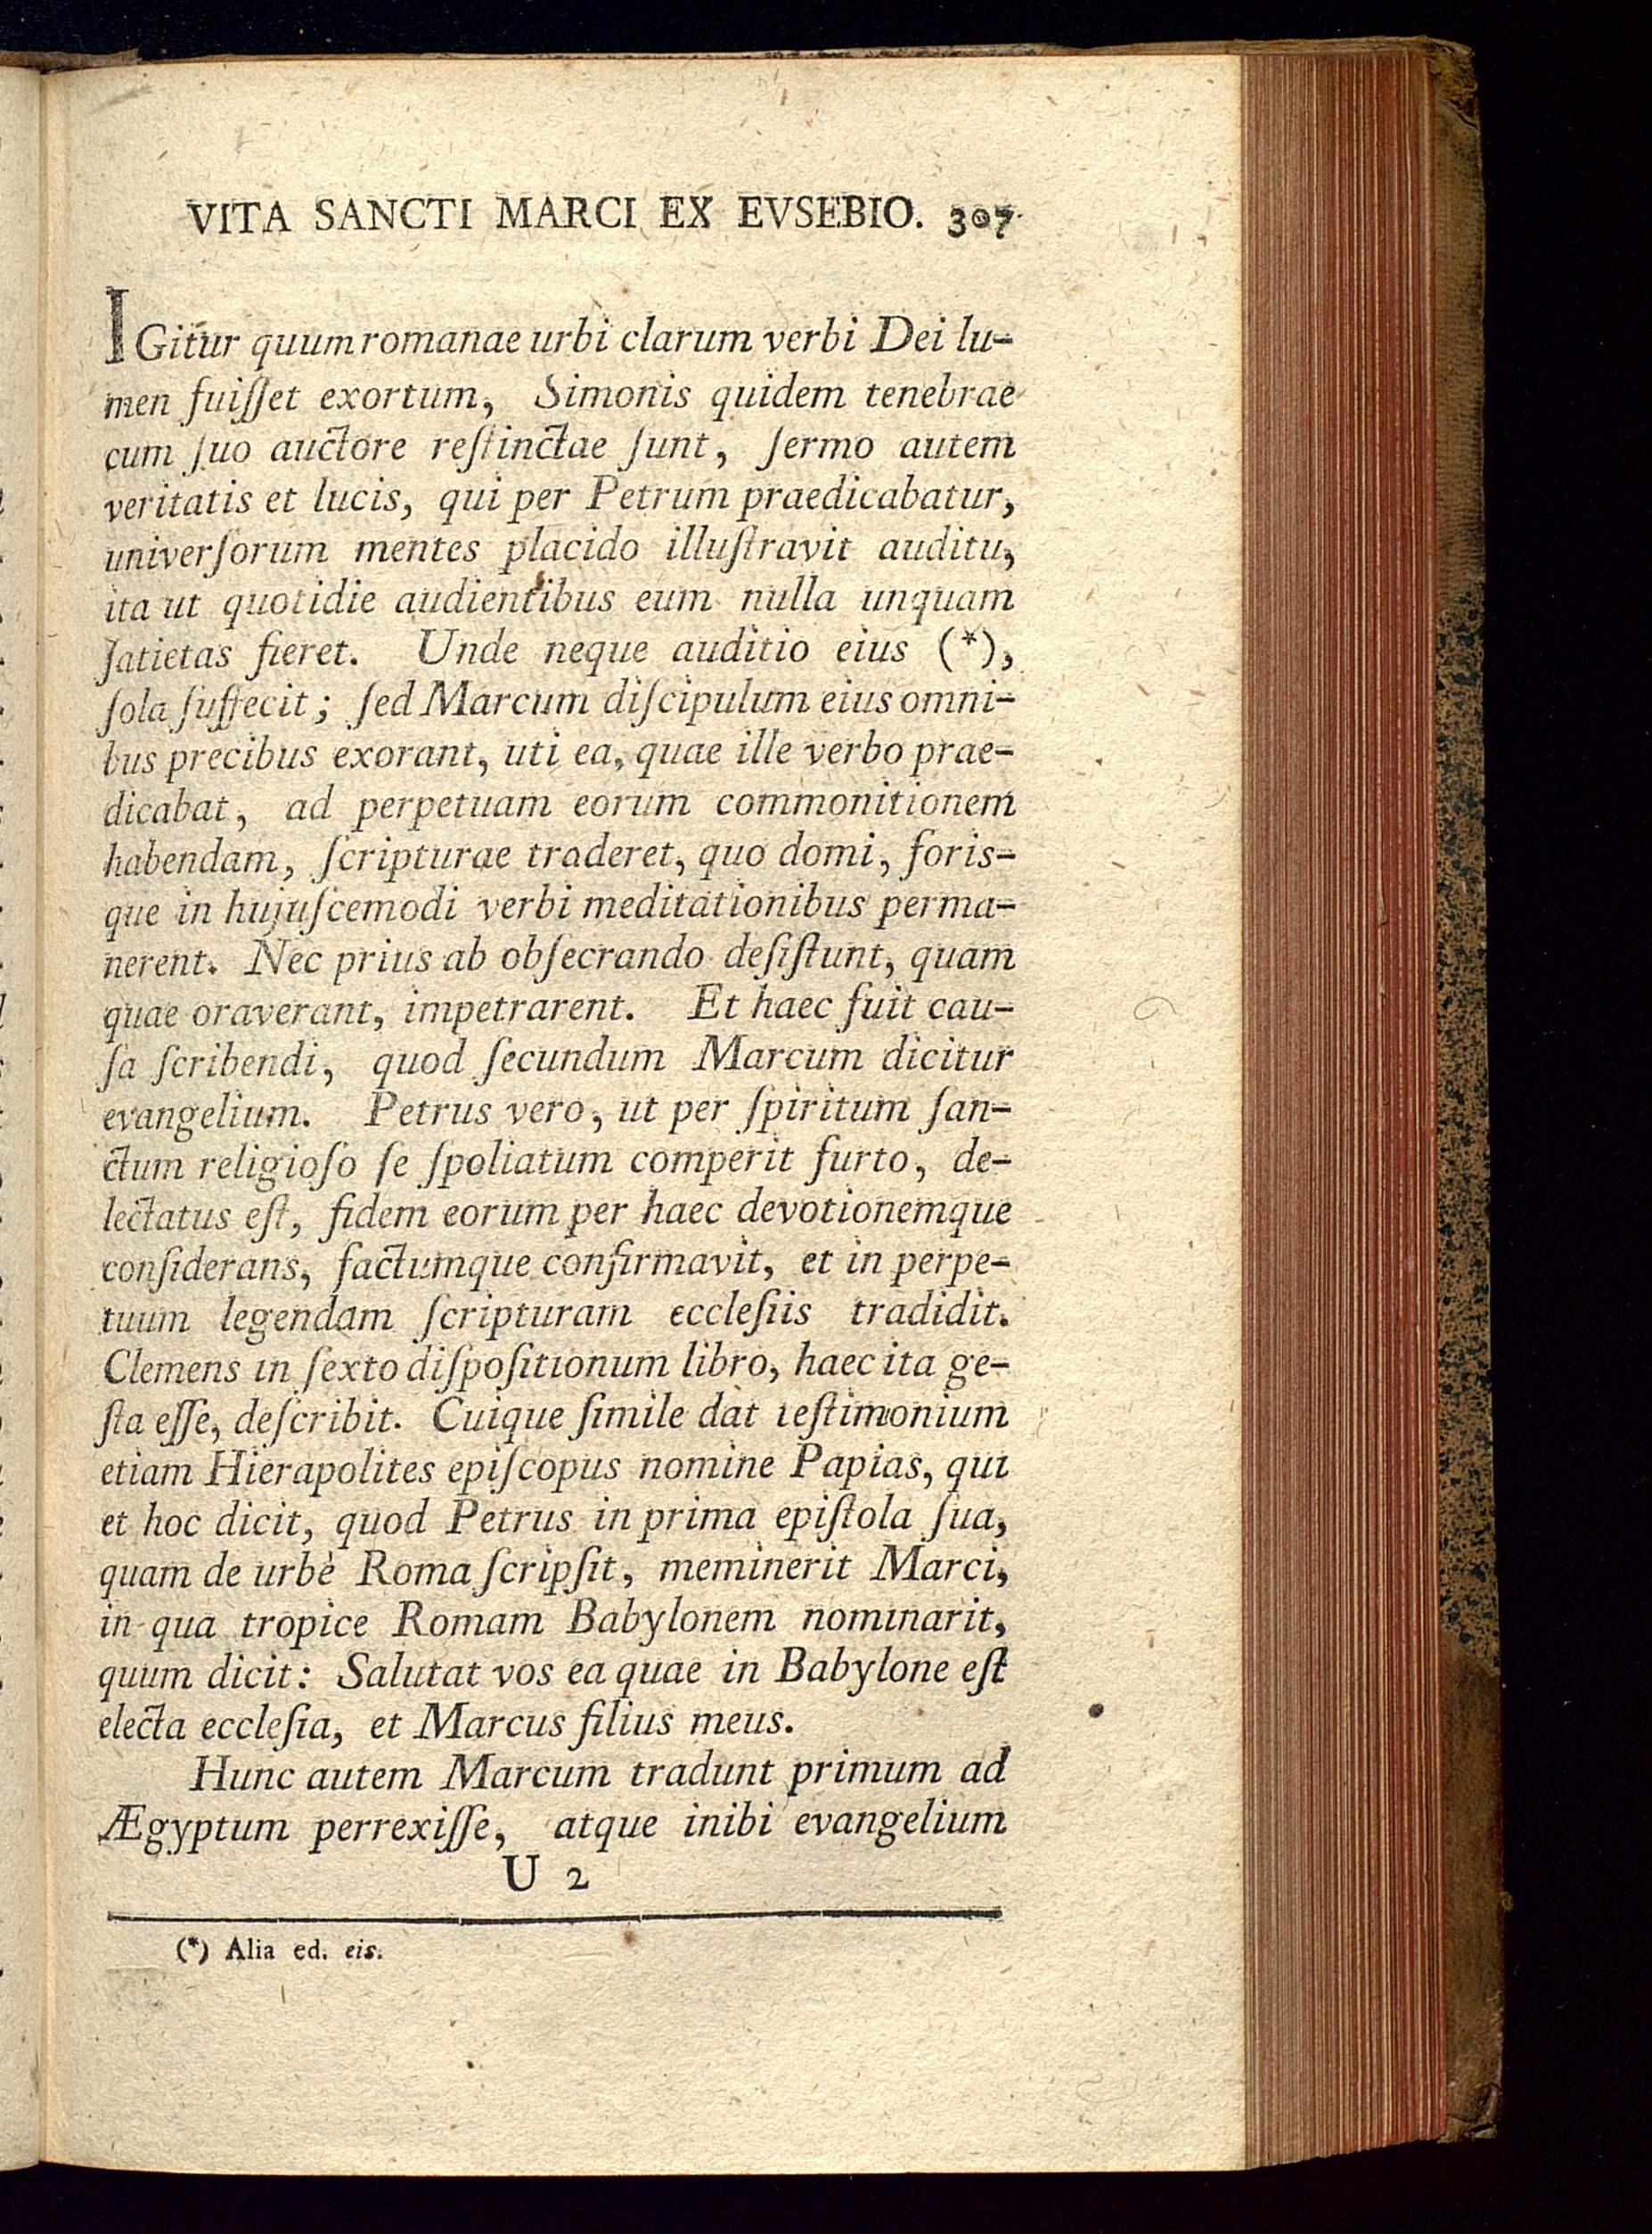 VITA SANCTI MARCI EX EVSEBIO. 307
IGitur quum romanae urbi clarum verbi Dei lu-
men fuiſſet exortum, Simonis quidem tenebrae
cum ſuo auctore reſtinctae ſunt, ſermo autem
veritatis et lucis, qui per Petrum praedicabatur,
univerſorum mentes placido illuſtravit auditu,
ita ut quotidie audientibus eum nulla unquam
ſatietas fieret. Unde neque auditio eius (*),
ſola ſuffecit; ſed Marcum diſcipulum eius omni-
bus precibus exorant, uti ea, quae ille verbo prae-
dicabat, ad perpetuam eorum commonitionem
habendam, ſcripturae traderet, quo domi, foris-
que in hujuſcemodi verbi meditationibus perma-
nerent. Nec prius ab obſecrando deſiſtunt, quam
quae oraverant, impetrarent. Et haec fuit cau-
ſa ſcribendi, quod ſecundum Marcum dicitur
evangelium. Petrus vero, ut per ſpiritum ſan-
ctum religioſo ſe ſpoliatum comperit furto, de-
lectatus eſt, fidem eorum per haec devotionemque
conſiderans, factumque confirmavit, et in perpe-
tuum legendam ſcripturam eccleſiis tradidit.
Clemens in ſexto diſpoſitionum libro, haec ita ge-
ſta eſſe, deſcribit. Cuique ſimile dat teſtimonium
etiam Hierapolites epiſcopus nomine Papias, qui
et hoc dicit, quod Petrus in prima epiſtola ſua,
quam de urbe Roma ſcripſit, meminerit Marci,
in qua tropice Romam Babylonem nominarit,
quum dicit: Salutat vos ea quae in Babylone eſt
electa eccleſia, et Marcus filius meus.
Hunc autem Marcum tradunt primum ad
Ægyptum perrexiſſe, atque inibi evangelium
U 2
(*) Alia ed. eis.